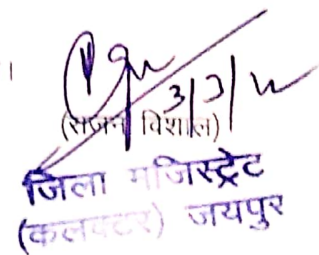 3/3/
(राजन विशाल)
जिला मजिस्ट्रेट
(कलक्टर) जयपुर